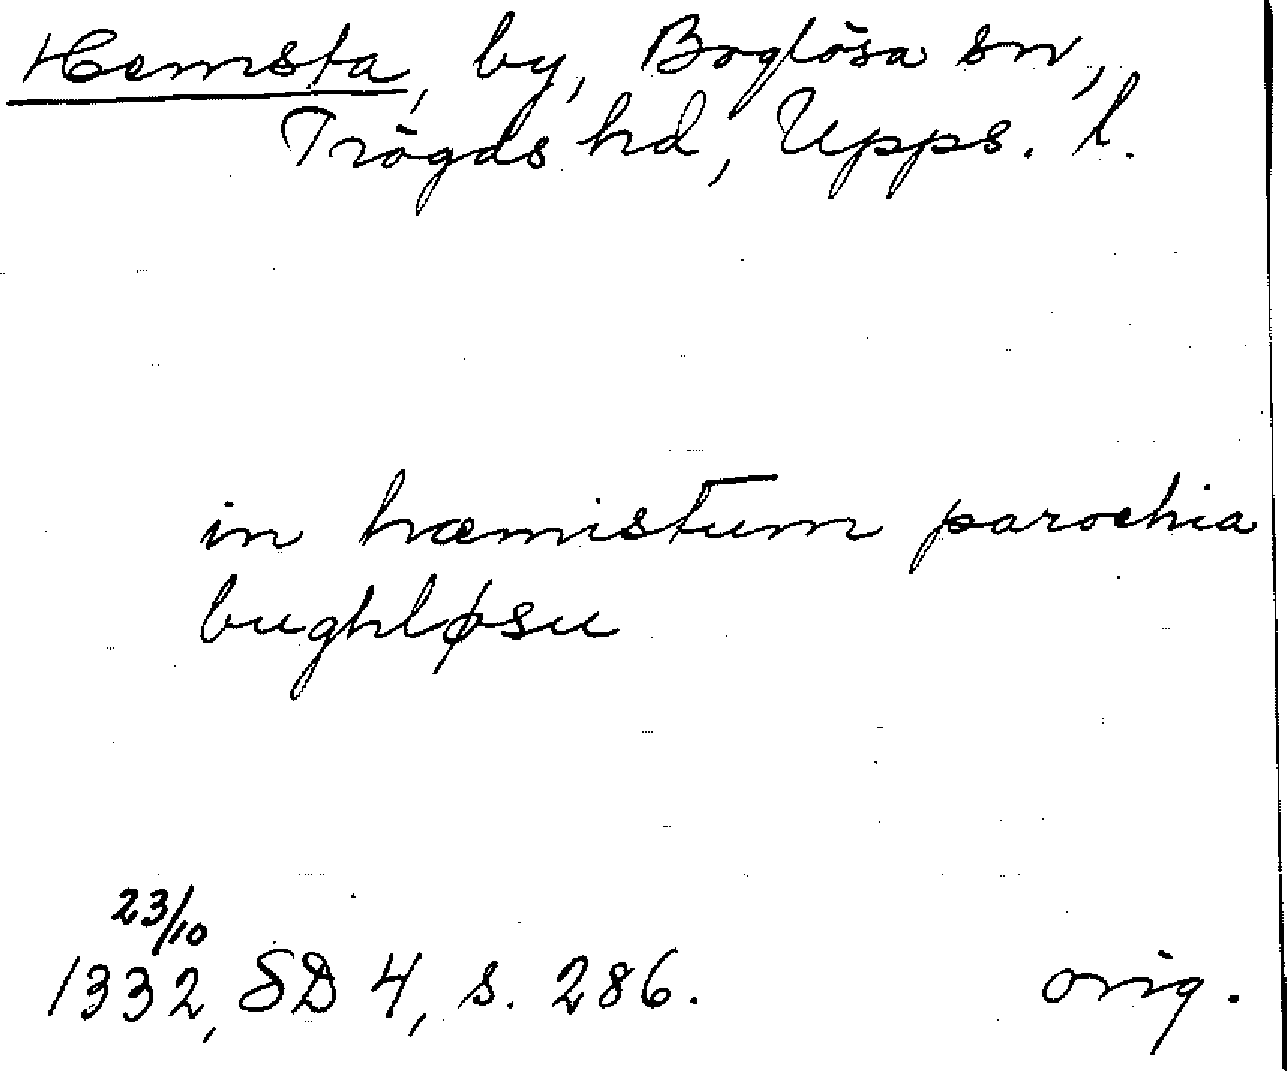 Hemsta, by, Boglösa sn,
Trögds hd, Upps. l.
in hæmistum parochia
bughløsu
23/10
1332, SD 4, s. 286. orig.